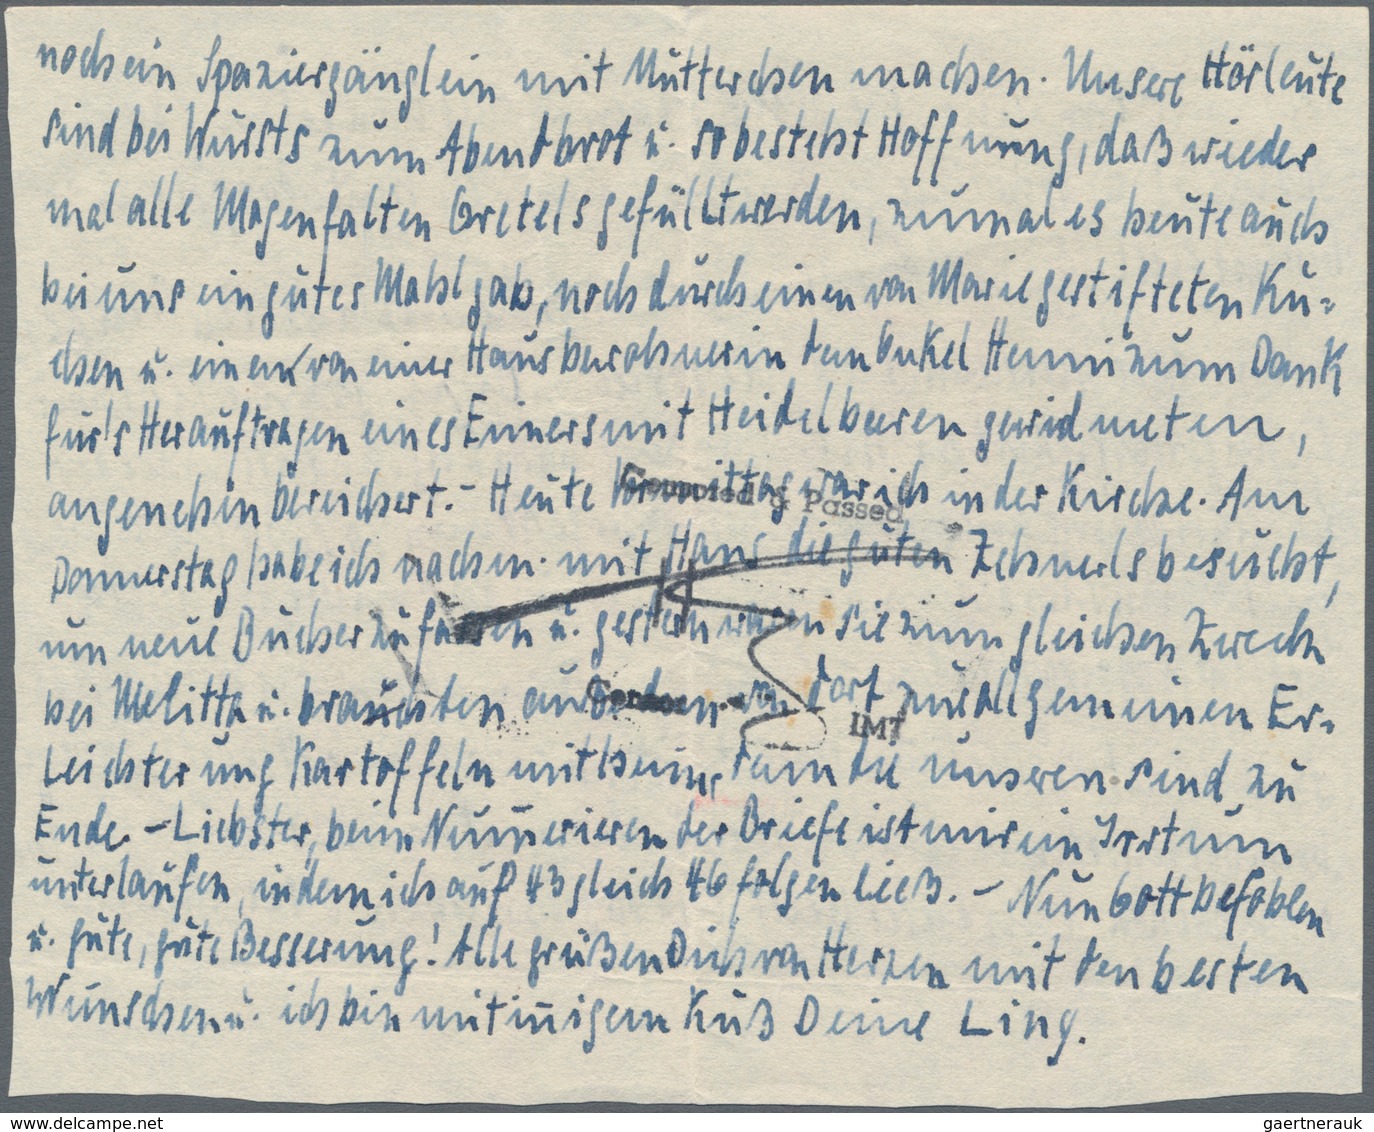 noch ein Spaziergänglein mit Mutterchen machen. Unsere Hörleute
sind bei Wursts zum Abendbrot u. so besteht Hoffnung, daß wieder
mal alle Magenfalten Gretels gefüllt werden, zumal es heute auch
bei uns ein gutes Mahl gab, noch durch einen von Marie gestifteten Ku-
chen u. einen von einer Hausbewohnerin dem Onkel Henni zum Dank
für's Herauftragen eines Eimers mit Heidelbeeren gewidmeten,
angenehm bereichert. – Heute Vormittag war ich in der Kirche. Am
Donnerstag habe ich nachm. mit Hans die guten Zehnerls besucht,
um neue Bücher zu fassen u. gestern waren sie zum gleichen Zweck
bei Melitta u. brachten außerdem von dort zur allgemeinen Er-
leichterung Kartoffeln mit heim, denn die unseren sind zu
Ende. – Liebster, beim Numerieren der Briefe ist mir ein Irrtum
unterlaufen, indem ich auf 43 gleich 46 folgen ließ. – Nun Gott befohlen
u. gute, gute Besserung! Alle grüßen Dich von Herzen mit den besten
Wünschen u. ich bin mit innigem Kuß Deine Ling.
Censored & Passed
Censor
IMT
www.delcampe.net
gaertnerauk